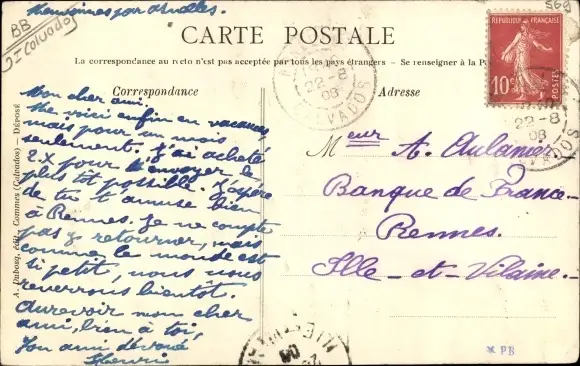 BB
Calvados
569
CARTE POSTALE
La correspondance au recto n'est pas acceptée par tous les pays étrangers - Se renseigner à la P
Correspondance
Adresse
Mon cher ami.
Me voici enfin en vacances
mais pour un mois
seulement. J'ai acheté
2 x pour t'envoyer le
plus tôt possible. J'espère
de tu t'amuse bien
à Rennes. Je ne compte
pas y retourner, mais
comme le monde est
si petit, nous nous
reverrons bientôt.
Aurevoir mon cher
ami, bien à toi,
Ton ami dévoué
Henri
A. Dubosq, édit. Commes (Calvados) — Déposé
REPUBLIQUE FRANÇAISE
10c
POSTES
22-8
08
CALVADOS
22-8
08
Meur A. Aulanier
Banque de France
Rennes.
Ille-et-Vilaine
* PB